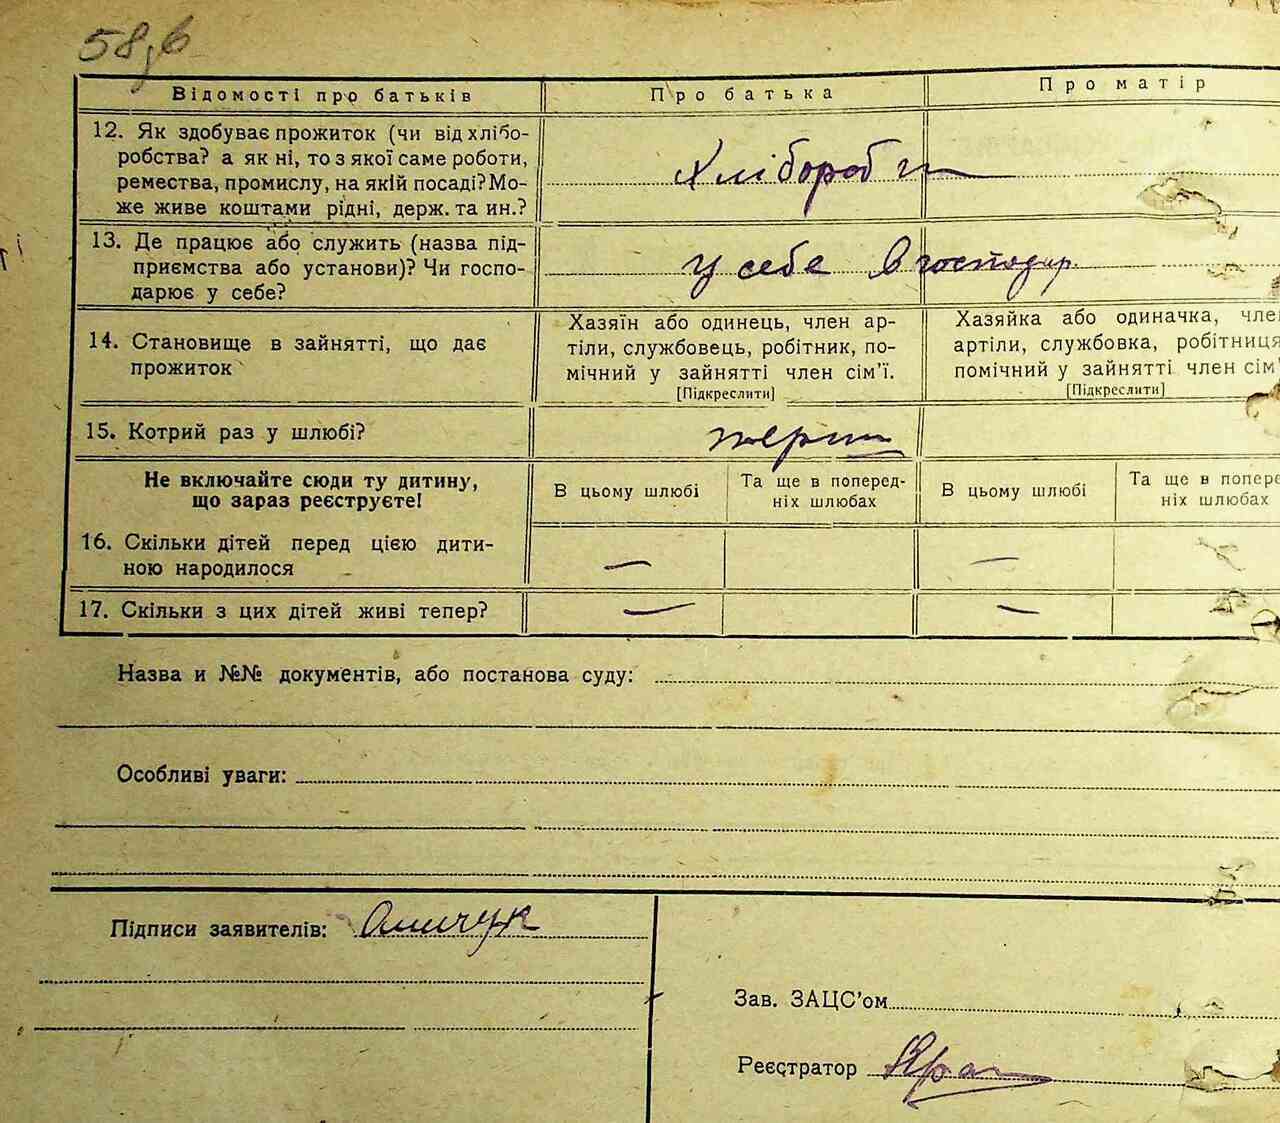 58,в
Відомості про батьків
Про батька
Про матір
12. Як здобуває прожиток (чи від хлібо-
робства? а як ні, то з якої саме роботи,
ремества, промислу, на якій посаді? Мо-
же живе коштами рідні, держ. та ин.?
Хлібороб
13. Де працює або служить (назва під-
приємства або установи)? Чи госпо-
дарює у себе?
у себе в господар.
14. Становище в зайнятті, що дає
прожиток
Хазяїн або одинець, член ар-
тіли, службовець, робітник, по-
мічний у зайнятті член сім'ї.
[Підкреслити]
Хазяйка або одиначка, член
артіли, службовка, робітниця
помічний у зайнятті член сім'
[Підкреслити]
15. Котрий раз у шлюбі?
Не включайте сюди ту дитину,
що зараз реєструєте!
В цьому шлюбі
Та ще в поперед-
ніх шлюбах
В цьому шлюбі
Та ще в попере
ніх шлюбах
16. Скільки дітей перед цією дити-
ною народилося
— —
17. Скільки з цих дітей живі тепер?
— —
Назва и №№ документів, або постанова суду:
Особливі уваги:
Підписи заявителів:
Зав. ЗАЦС'ом
Реєстратор